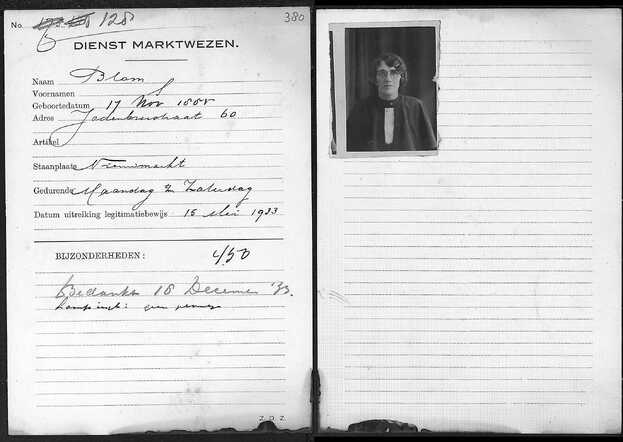 No. 128 380
DIENST MARKTWEZEN.
Naam Blom
Voornamen
Geboortedatum 17 Nov
Adres Jodenbreestraat 60
Artikel
Staanplaats Nieuwmarkt
Gedurende Maandag Zaterdag
Datum uitreiking legitimatiebewijs 15 Mei 1933
BIJZONDERHEDEN: 4/50
Bedankt 18 Decemer '33.
Z.O.Z.